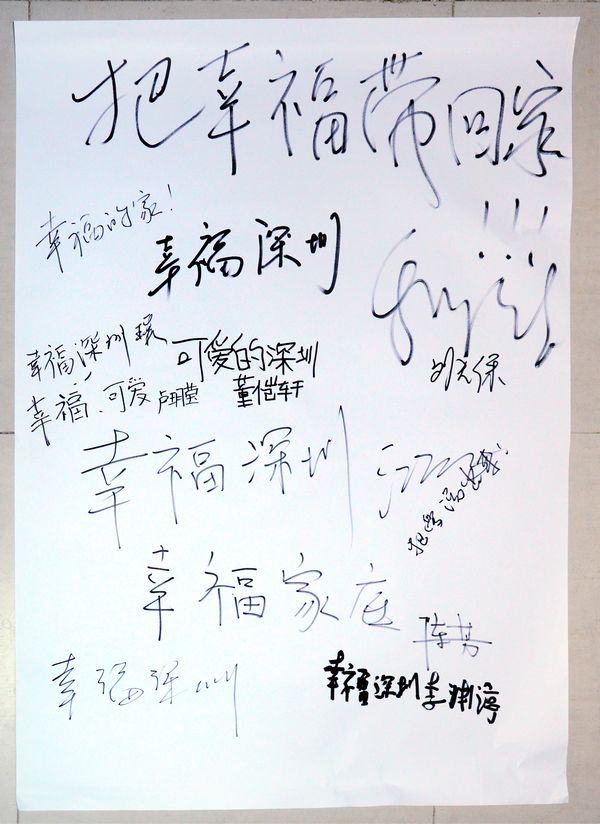 把幸福带回家
!!!
幸福的家!
幸福深圳
刘文保
幸福深圳
可爱的深圳
幸福、可爱
董恺轩
幸福深圳
幸福家庭
陈芳
幸福深圳
幸福深圳李